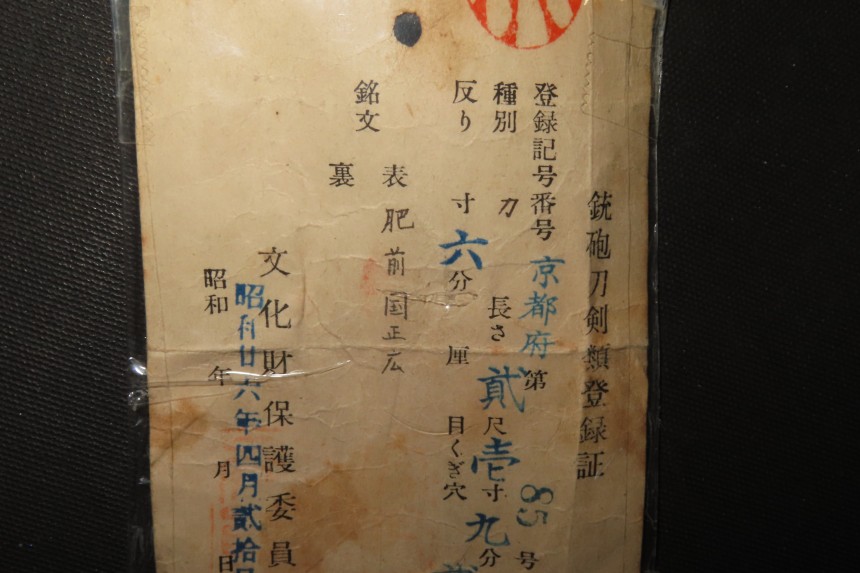 銃砲刀剣類登録証
登録記号番号 京都府 第 85 号
種別 刀 長さ 貳尺壱寸九分
反り 寸六分 厘 目くぎ穴
銘文 表 肥前国正広
裏
文化財保護委員
昭和 年 月 日
昭和廿六年四月貳拾